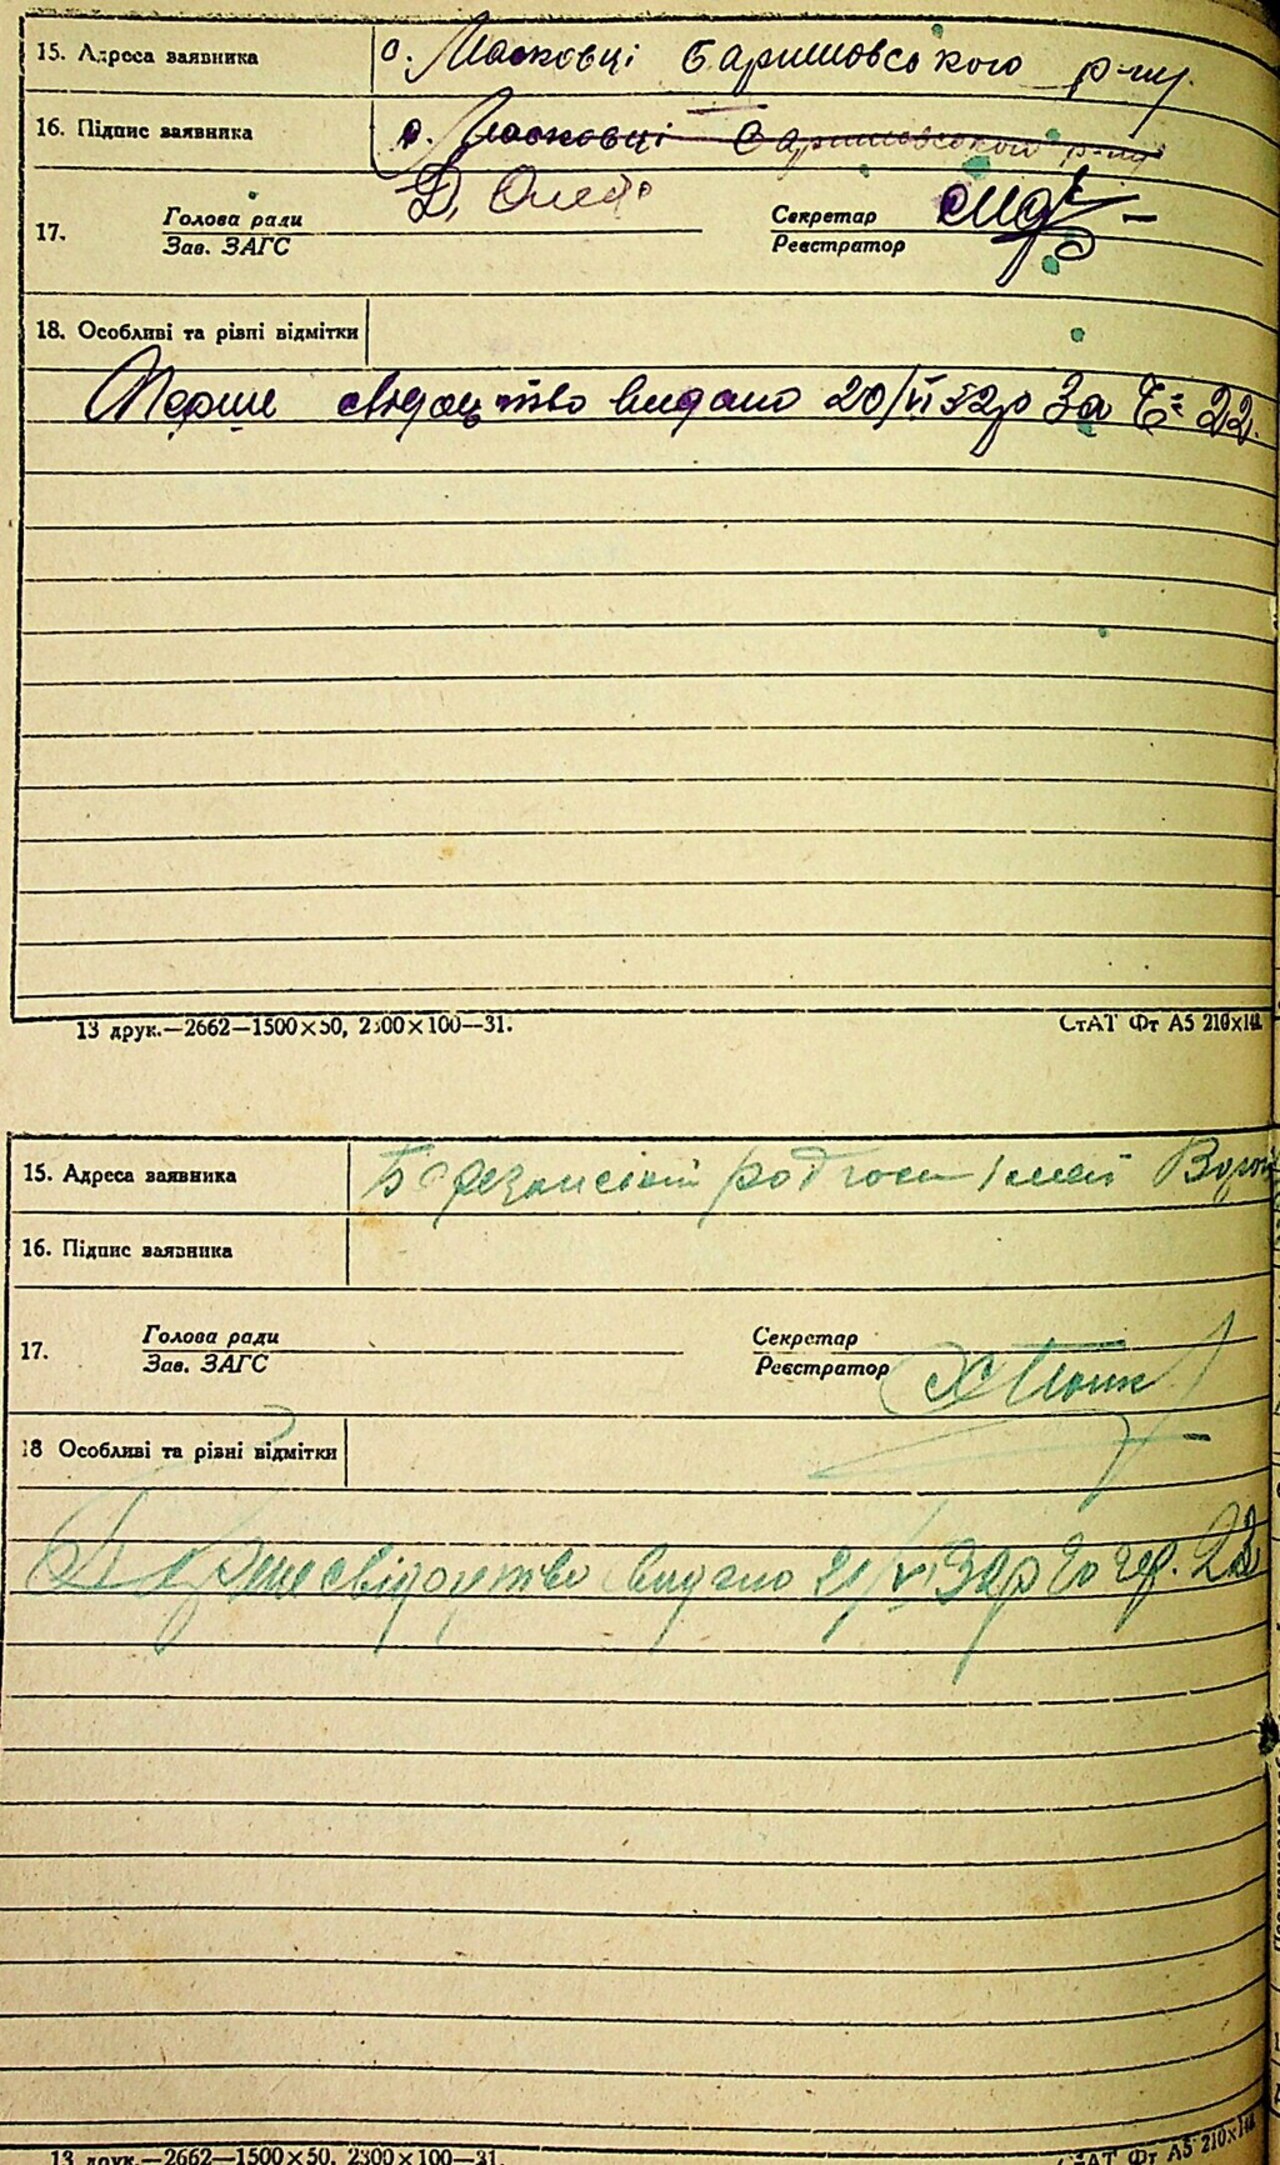 15. Адреса заявника с. Масковці Баришовського р-ну.
16. Підпис заявника с. Масковці Баришовського р-ну
17. Голова ради Секретар
Зав. ЗАГС Реєстратор
18. Особливі та різні відмітки
Перше свідоцтво видано 20/VI 32р За Ч= 22.
13 друк.—2662—1500×50, 2300×100—31. СтАТ Фт А5 210×148
15. Адреса заявника
16. Підпис заявника
17. Голова ради Секретар
Зав. ЗАГС Реєстратор
18 Особливі та різні відмітки
Перше свідоцтво видано 21/VI 32р
13 друк.—2662—1500×50, 2300×100—31. СтАТ Фт А5 210×148